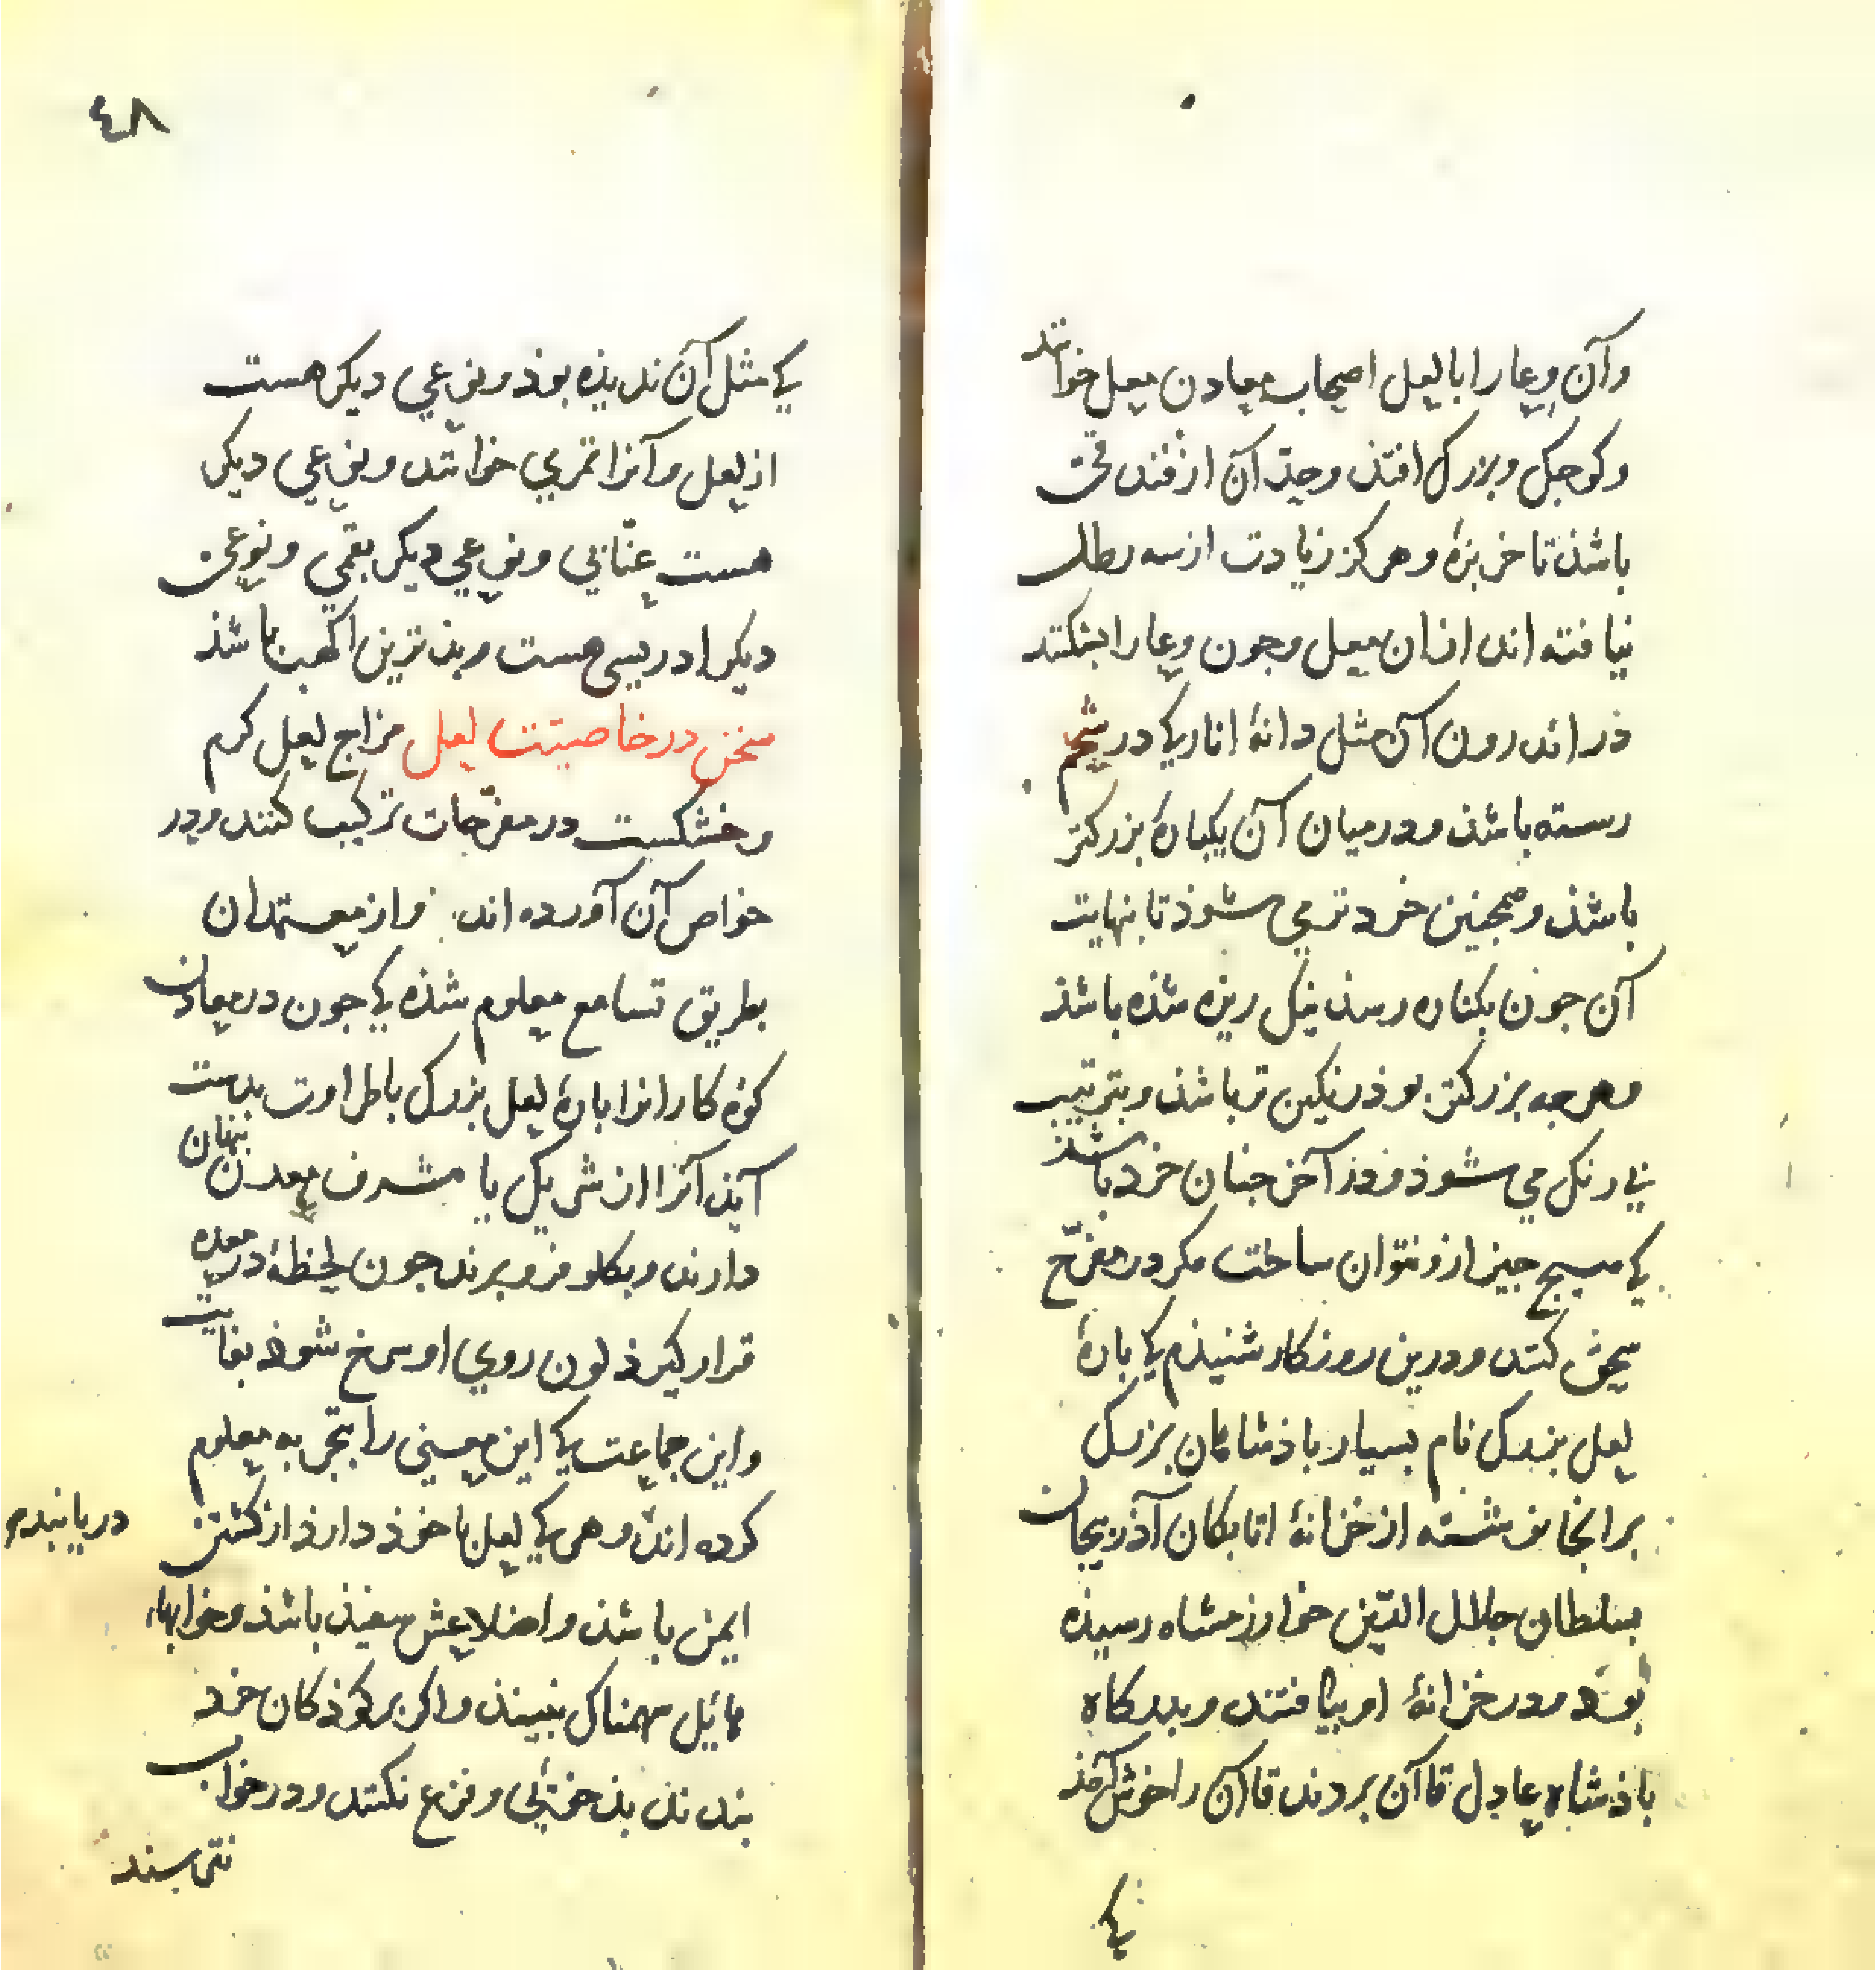 وآن وعا را با لعل اصحاب معادن معل خوانند
وکوجک وبزرک افتذ وجثه آن از فندقی
باشذ تا خربزۀ وهرکز زیادت از سه رطل
نیافته اند ازان معل وجون وعا را بشکنند
در اندرون آن مثل دانۀ انار کی در شحم
رسته باشذ ودر میان آن یکباره بزرکتر
باشذ وهمجنین خردتر می شوذ تا بنهایت
آن جون بکناره رسذ نیک ریزه شذه باشذ
وهرجه بزرکتر بوذ رنکین تر باشذ وبترتیب
بی رنک می شوذ وذر آخر جنان خرد باشذ
کی هیج جیز ازو نتوان ساخت مکر در مفرّح
سحق کنند ودرین روزکار شنیذم کی بارۀ
لعل بزرک نام بسیار باذشاهان بزرک
برانجا نوشته از خزانۀ اتابکان آذربیجان
بسلطان جلال الدّین خوارزمشاه رسیذه
بوذ ودر خزانۀ او بیافتند وبدرکاه
باذشاه عادل قاآن بردند قاآن را خوش آمذ
کی
٤٨
کی مثل آن ندیذه بوذ ونوعی دیکر هست
از لعل وآنرا تمری خوانند ونوعی دیکر
هست عنّابی ونوعی دیکر بقمی ونوعی
دیکر ادریسی هست وبذترین اکهب باشذ
سخن در خاصیتت لعل مزاج لعل کرم
وخشکست در مفرّحات ترکیب کنند ودر
خواص آن آورده اند واز معتمدان
بطریق تسامع معلوم شذه کی جون در معادن
کوه کارانرا بارۀ لعل بزرک با طراوت بدست
آیذ آنرا از شریک یا مشرف معدن بنهان
دارند وبکلو فرو برند جون لحظۀ در معده
قرار کیرذ لون روی او سرخ شوذ بغایت
واین جماعت کی این معنی را بتجربه معلوم
کرده اند وهر کی لعل با خوذ دارذ از کشتن
در یابندم
ایمن باشذ واضلاعش سفیذ باشذ وخوابهاء
هایل سهمناک نبیند واکر بر کوذکان خرد
بندند بذخوئی وفزع نکنند ودر خواب
نترسند